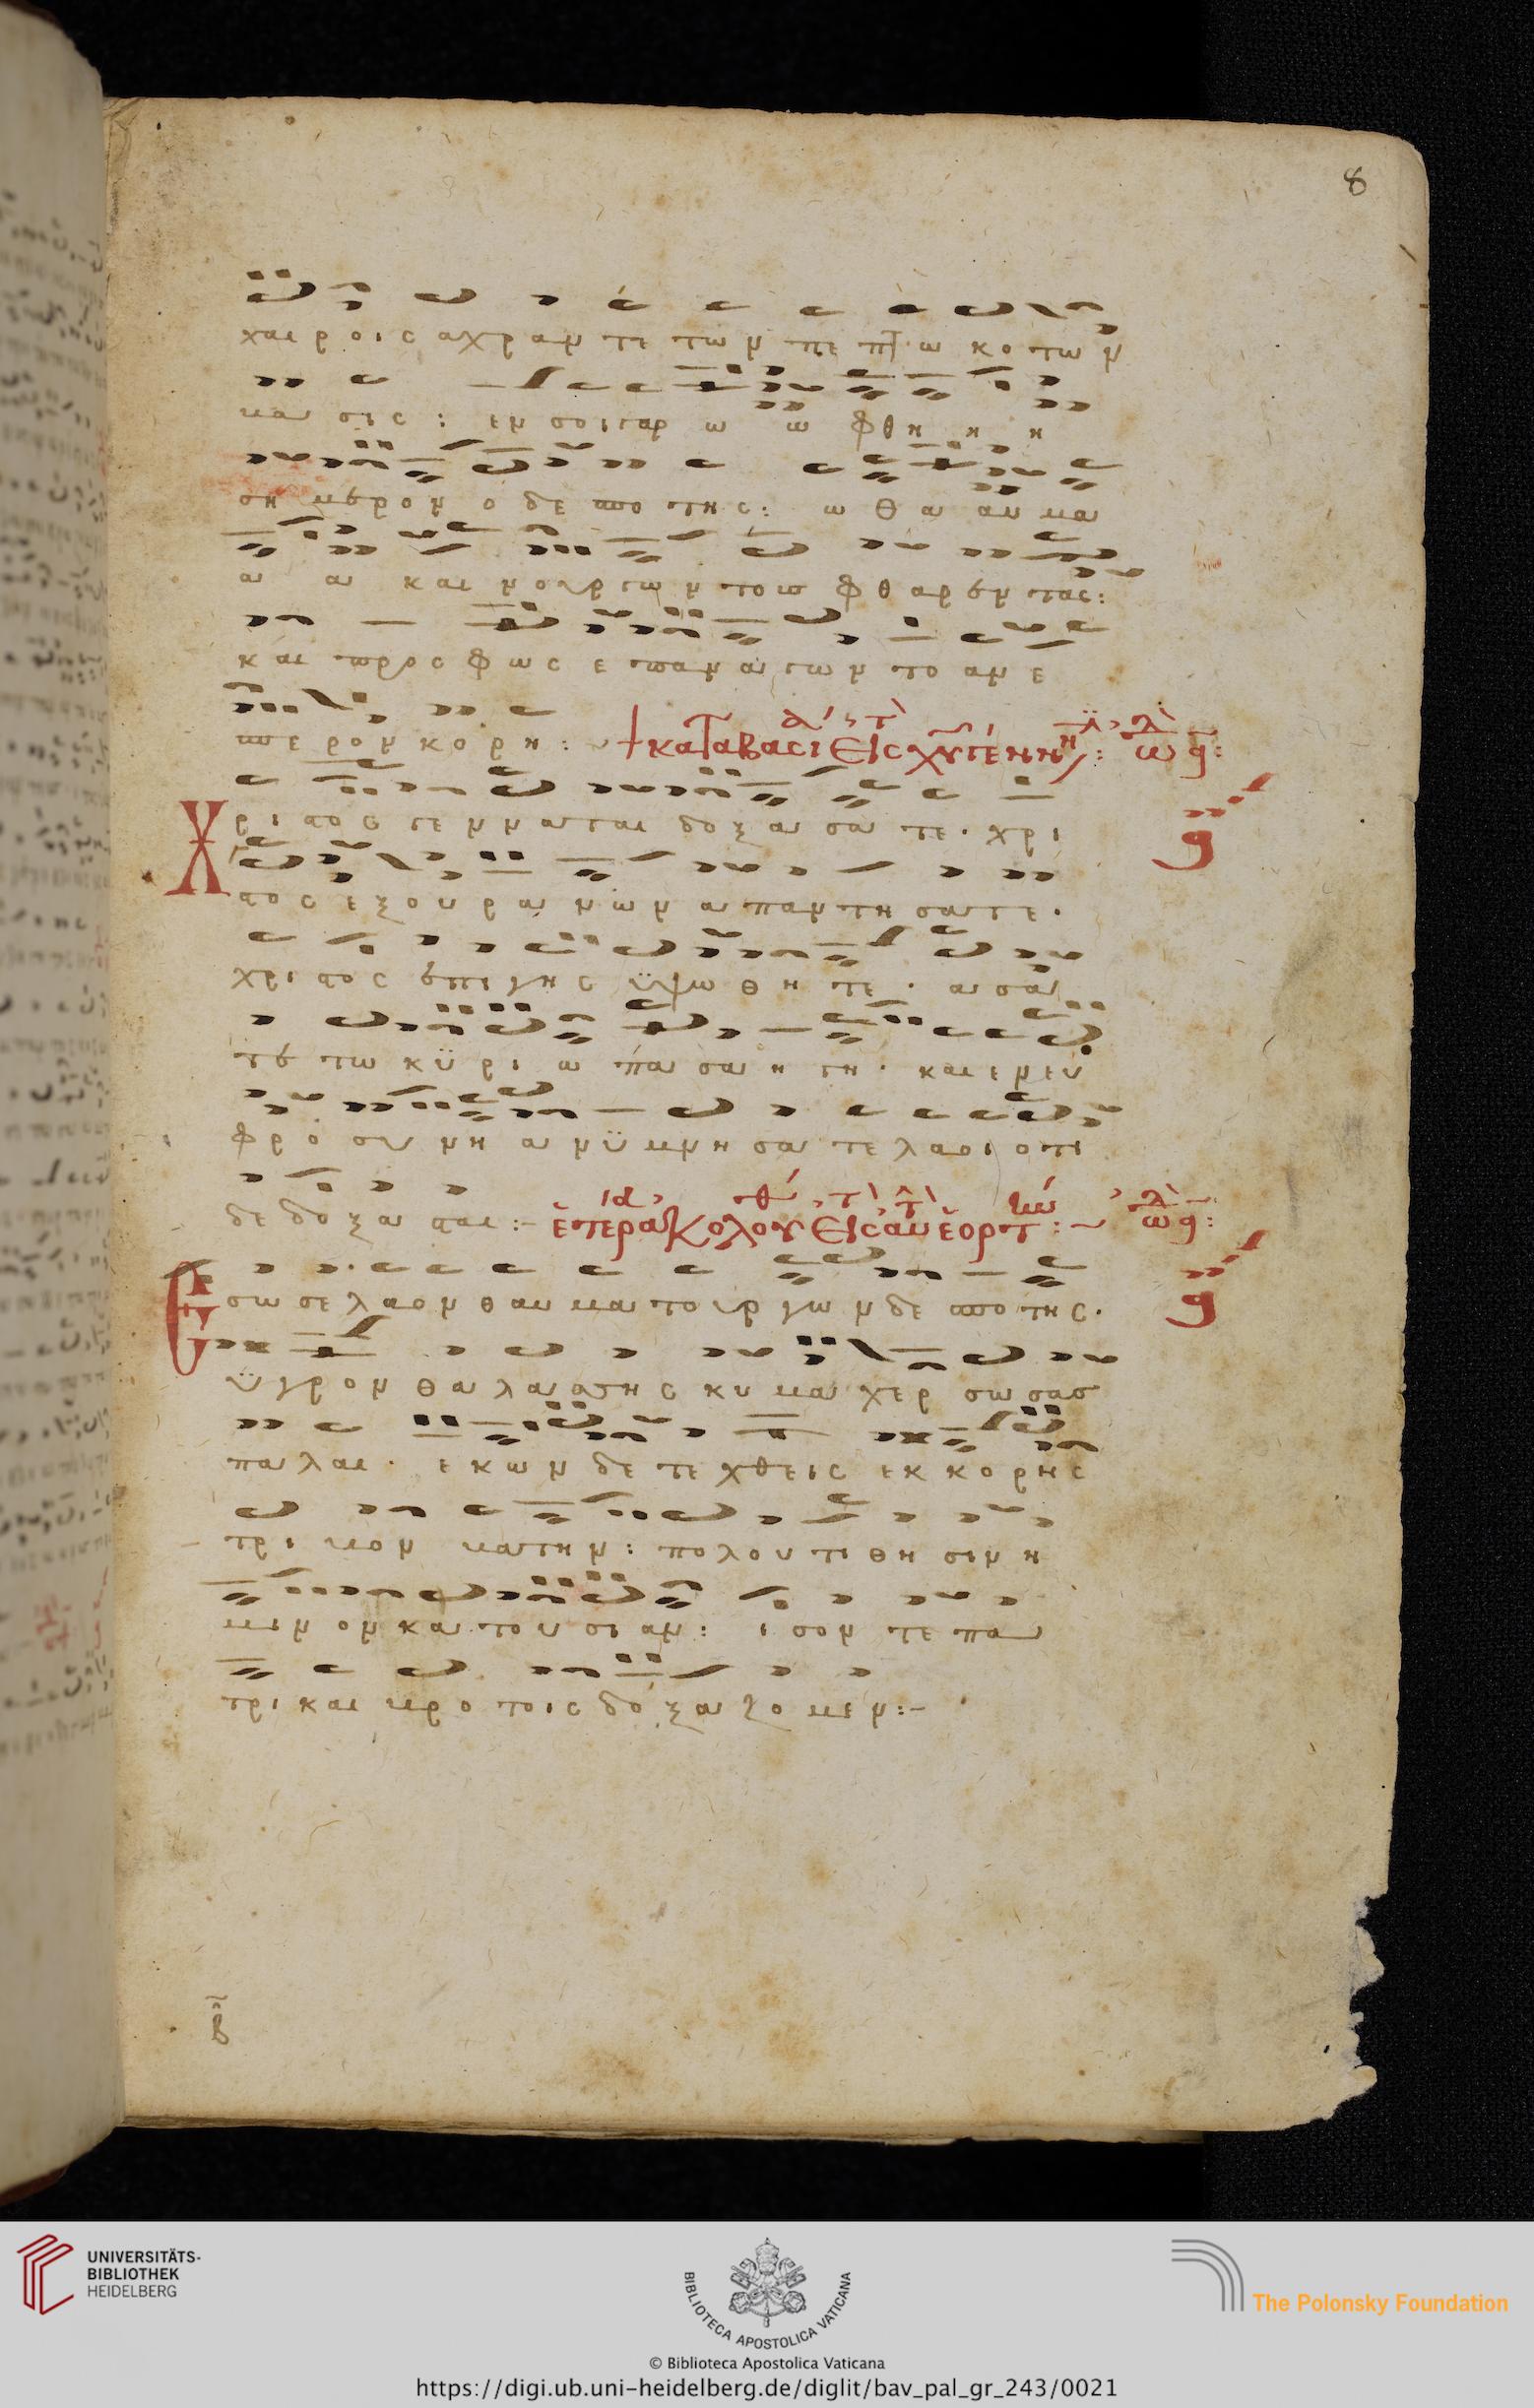 8
χαιροις αχραντε των πεπτωκοτων
ναι σις : εν σοι γαρ ω ω φθη η η
σημερον ο δεσποτης : ω θα αυ μα
α α και νουργων τους φθαρεντας :
και προς φως επαναγων το ανε
σπερον κορη : καταβασι εις χυ γενν : ω α :
Χριστος γενναται δοξασατε · χρι
στος εξ ουρανων απαντησατε ·
χριστος επι γης ϋψωθητε · ασα
τε τω κϋριω πασα η γη · και εν ευ
φροσυνη ανϋμνησατε λαοι οτι
δεδοξασται :- ετερα ακολου εις αυ εορτ : ω α :
Εσωσε λαον θαυματουργων δεσποτης ·
ϋγρον θαλασσης κυμα χερσωσας
παλαι · εκων δε τεχθεις εκ κορης
τριβον βατην : πολου τιθησιν η
μιν ον κατ ουσιαν : ισον τε πα
τρι και βροτοις δοξαζομεν :-
UNIVERSITÄTS-
BIBLIOTHEK
HEIDELBERG
BIBLIOTECA APOSTOLICA VATICANA
The Polonsky Foundation
© Biblioteca Apostolica Vaticana
https://digi.ub.uni-heidelberg.de/diglit/bav_pal_gr_243/0021